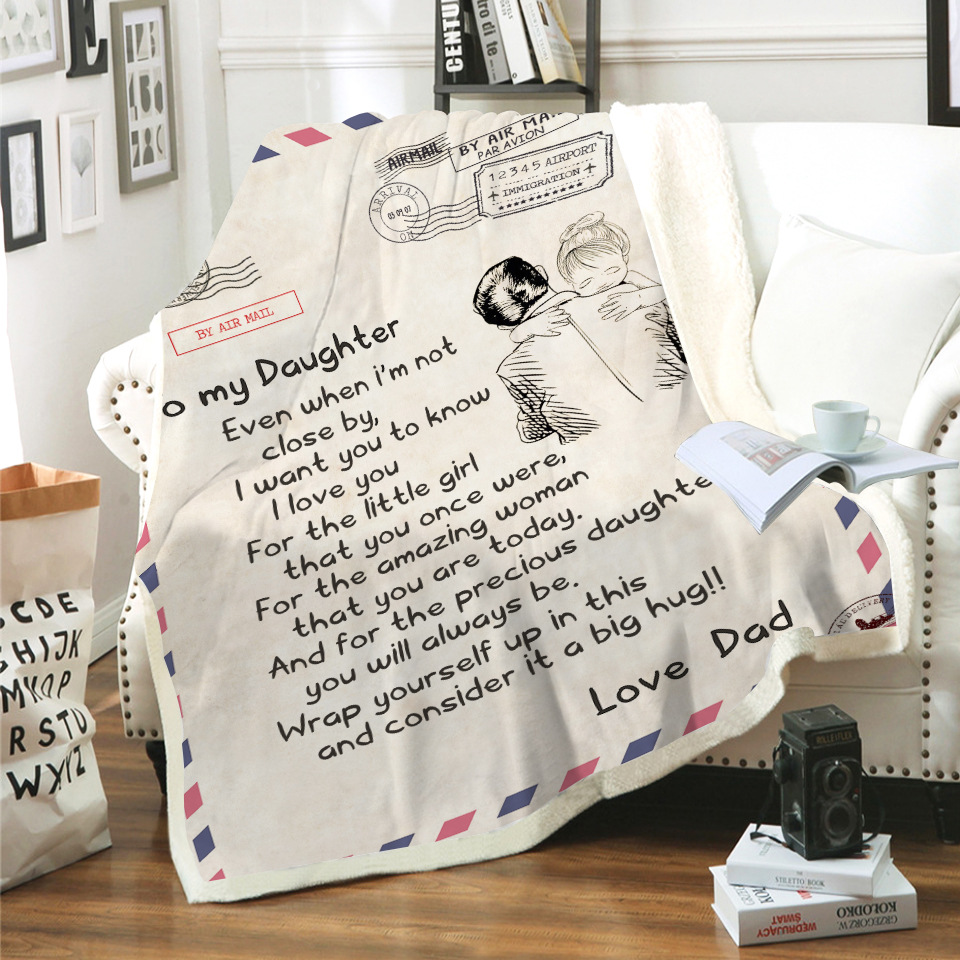 CENTU
tro di te
AIRMAIL
BY AIR MA
PAR AVION
12345 AIRPORT
IMMIGRATION
ARRIVAL
BY AIR MAIL
o my Daughter
Even when i'm not
close by,
I want you to know
I love you
For the little girl
that you once were,
For the amazing woman
that you are today.
And for the precious daughte
you will always be.
Wrap yourself up in this
and consider it a big hug!!
Love Dad
E
CDE
GHIJK
R STU
WXYZ
ROLLEIFLEX
STILETTO BOOK
GRZEGORZ W. KOŁODKO
WĘDRUJĄCY
ŚWIAT